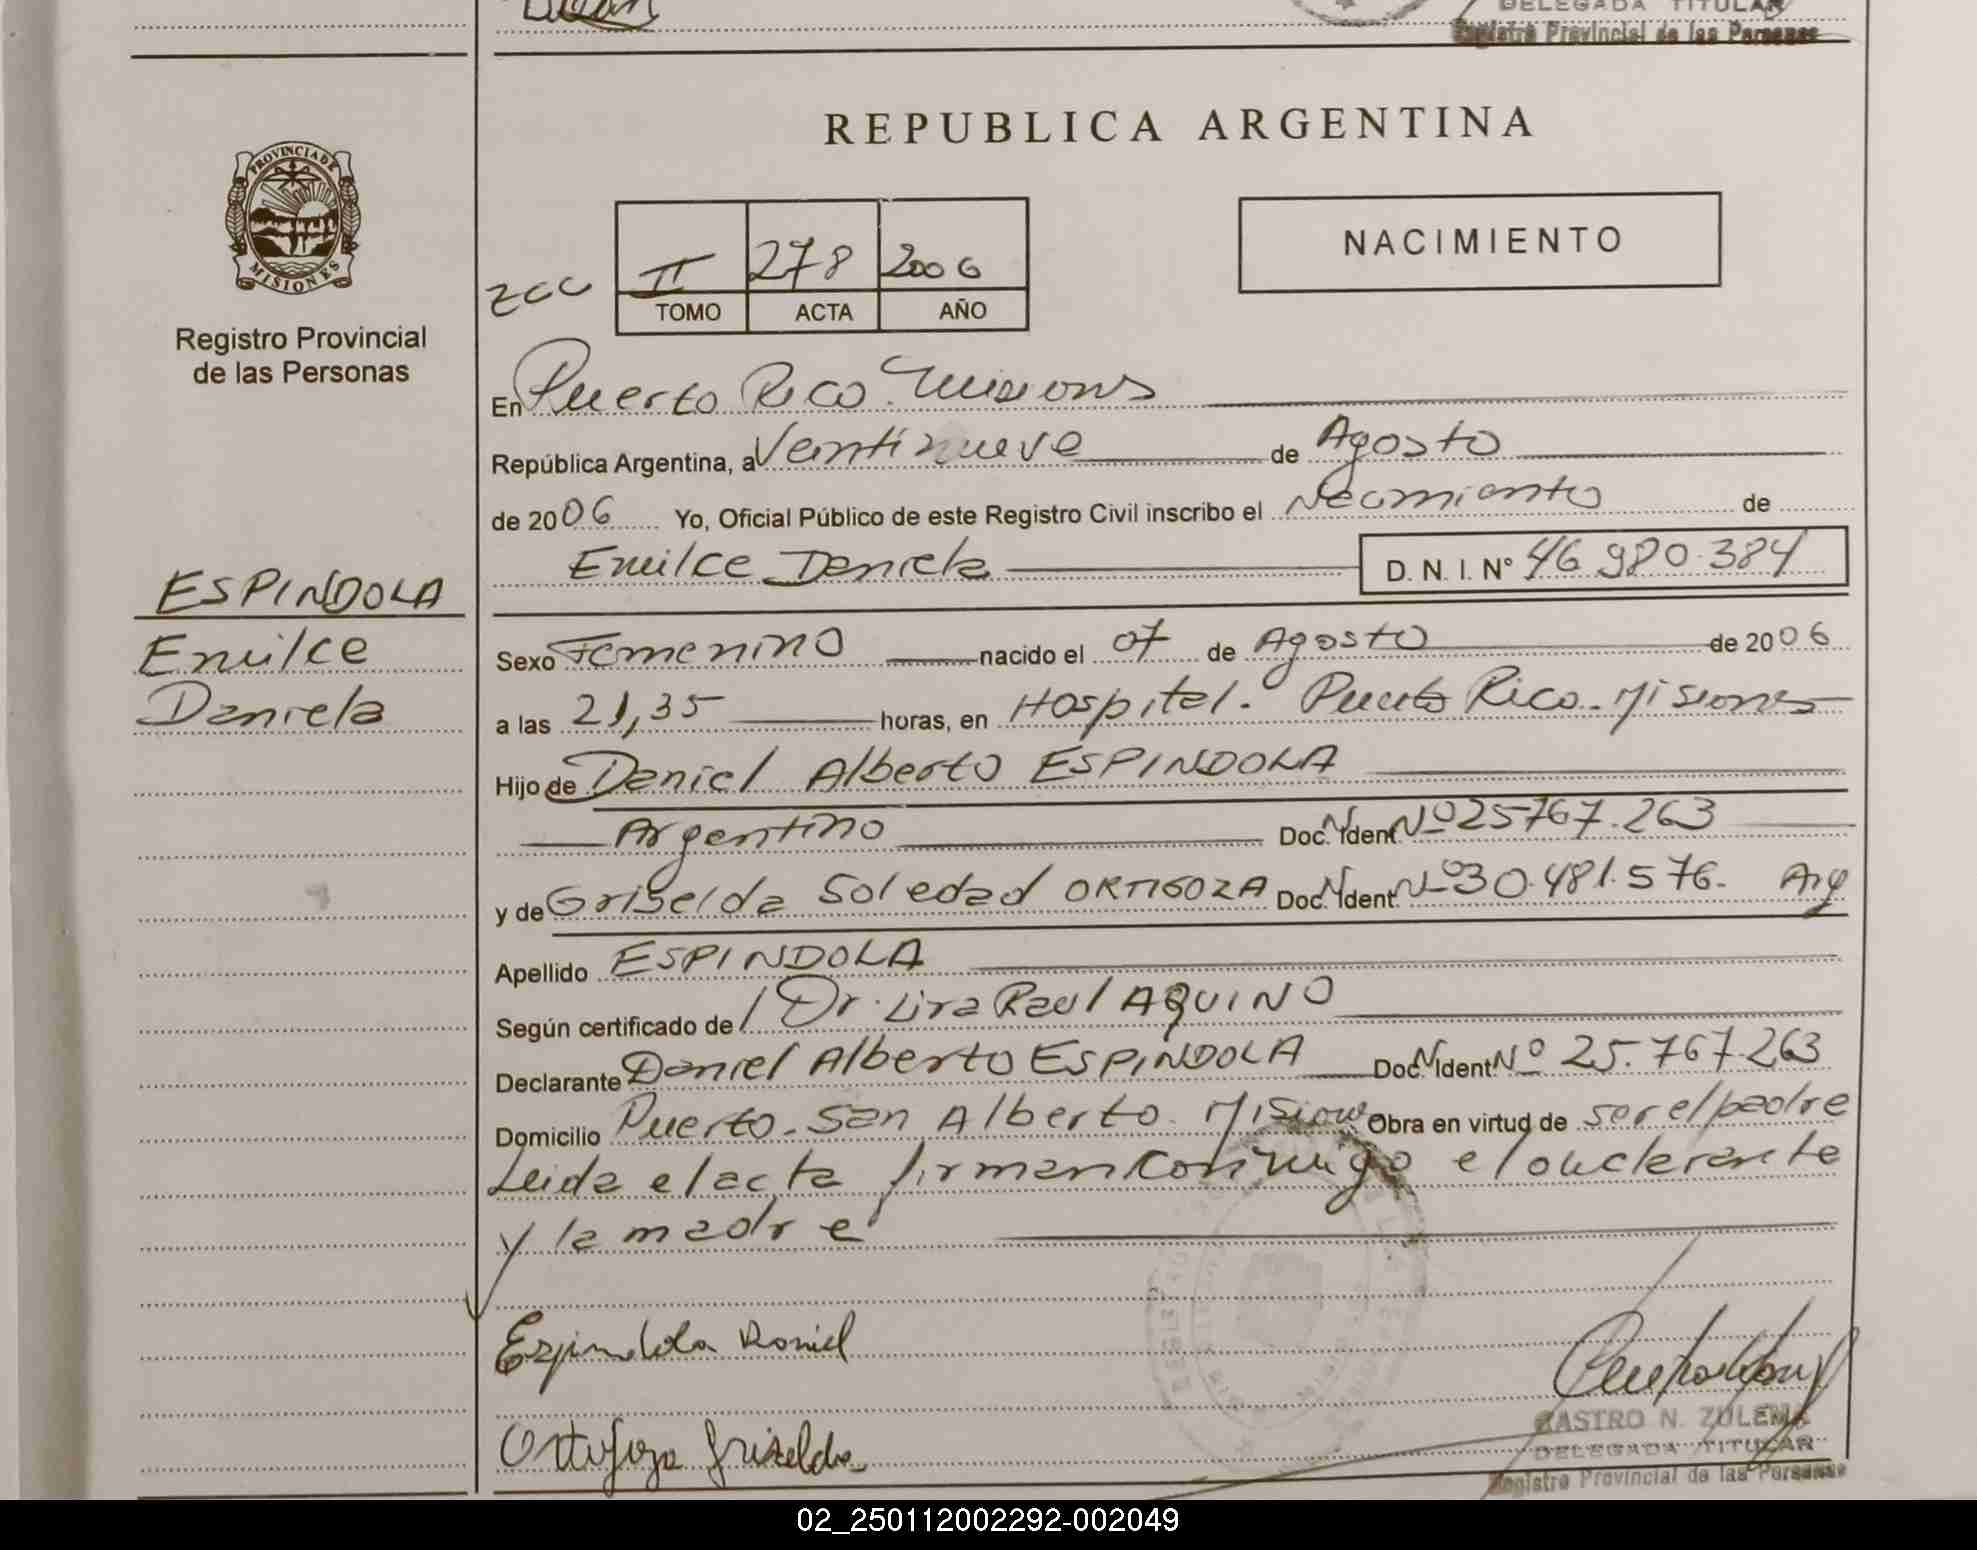 DELEGADA TITULAR
Registro Provincial de las Personas
REPUBLICA ARGENTINA
PROVINCIA DE
MISIONES
Registro Provincial
de las Personas
II 278 2006
TOMO ACTA AÑO
NACIMIENTO
En Puerto Rico. Misiones
República Argentina, a Veintinueve de Agosto
de 2006 Yo, Oficial Público de este Registro Civil inscribo el Nacimiento de
Emilce Daniela D. N. I. N° 46.980.384
ESPINDOLA
Emilce
Daniela
Sexo Femenino nacido el 07 de Agosto de 2006
a las 21,35 horas, en Hospital. Puerto Rico. Misiones
Hijo de Daniel Alberto ESPINDOLA
Argentino Doc. Ident. Nº 25767.263
y de Griselda Soledad ORTIGOZA Doc. Ident. Nº 30.481.576. Arg
Apellido ESPINDOLA
Según certificado de Dr. Lira Raul AQUINO
Declarante Daniel Alberto ESPINDOLA Doc. Ident. Nº 25.767.263
Domicilio Puerto San Alberto. Misiones Obra en virtud de ser el padre
Leida el acta firman conmigo el declarante
y la madre
Espindola Daniel
Ortigoza Griselda
CASTRO N. ZULEMA
DELEGADA TITULAR
Registro Provincial de las Personas
02_250112002292-002049